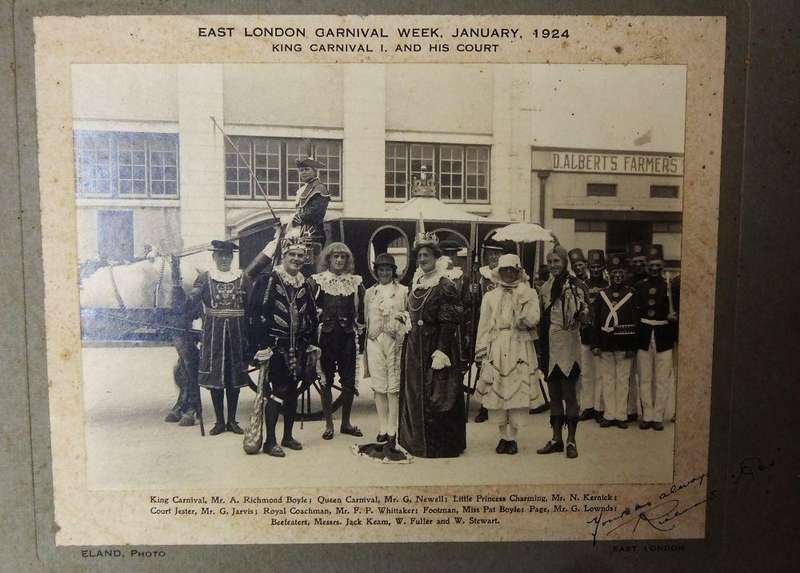 EAST LONDON CARNIVAL WEEK, JANUARY, 1924
KING CARNIVAL I. AND HIS COURT
D. ALBERT'S FARMERS
King Carnival, Mr. A. Richmond Boyle; Queen Carnival, Mr. G. Newell; Little Princess Charming, Mr. N. Kernick;
Court Jester, Mr. G. Jarvis; Royal Coachman, Mr. F. F. Whittaker; Footman, Miss Pat Boyle; Page, Mr. G. Lownds;
Beefeaters, Messrs. Jack Keam, W. Fuller and W. Stewart.
yours as always
ELAND, PHOTO
EAST LONDON